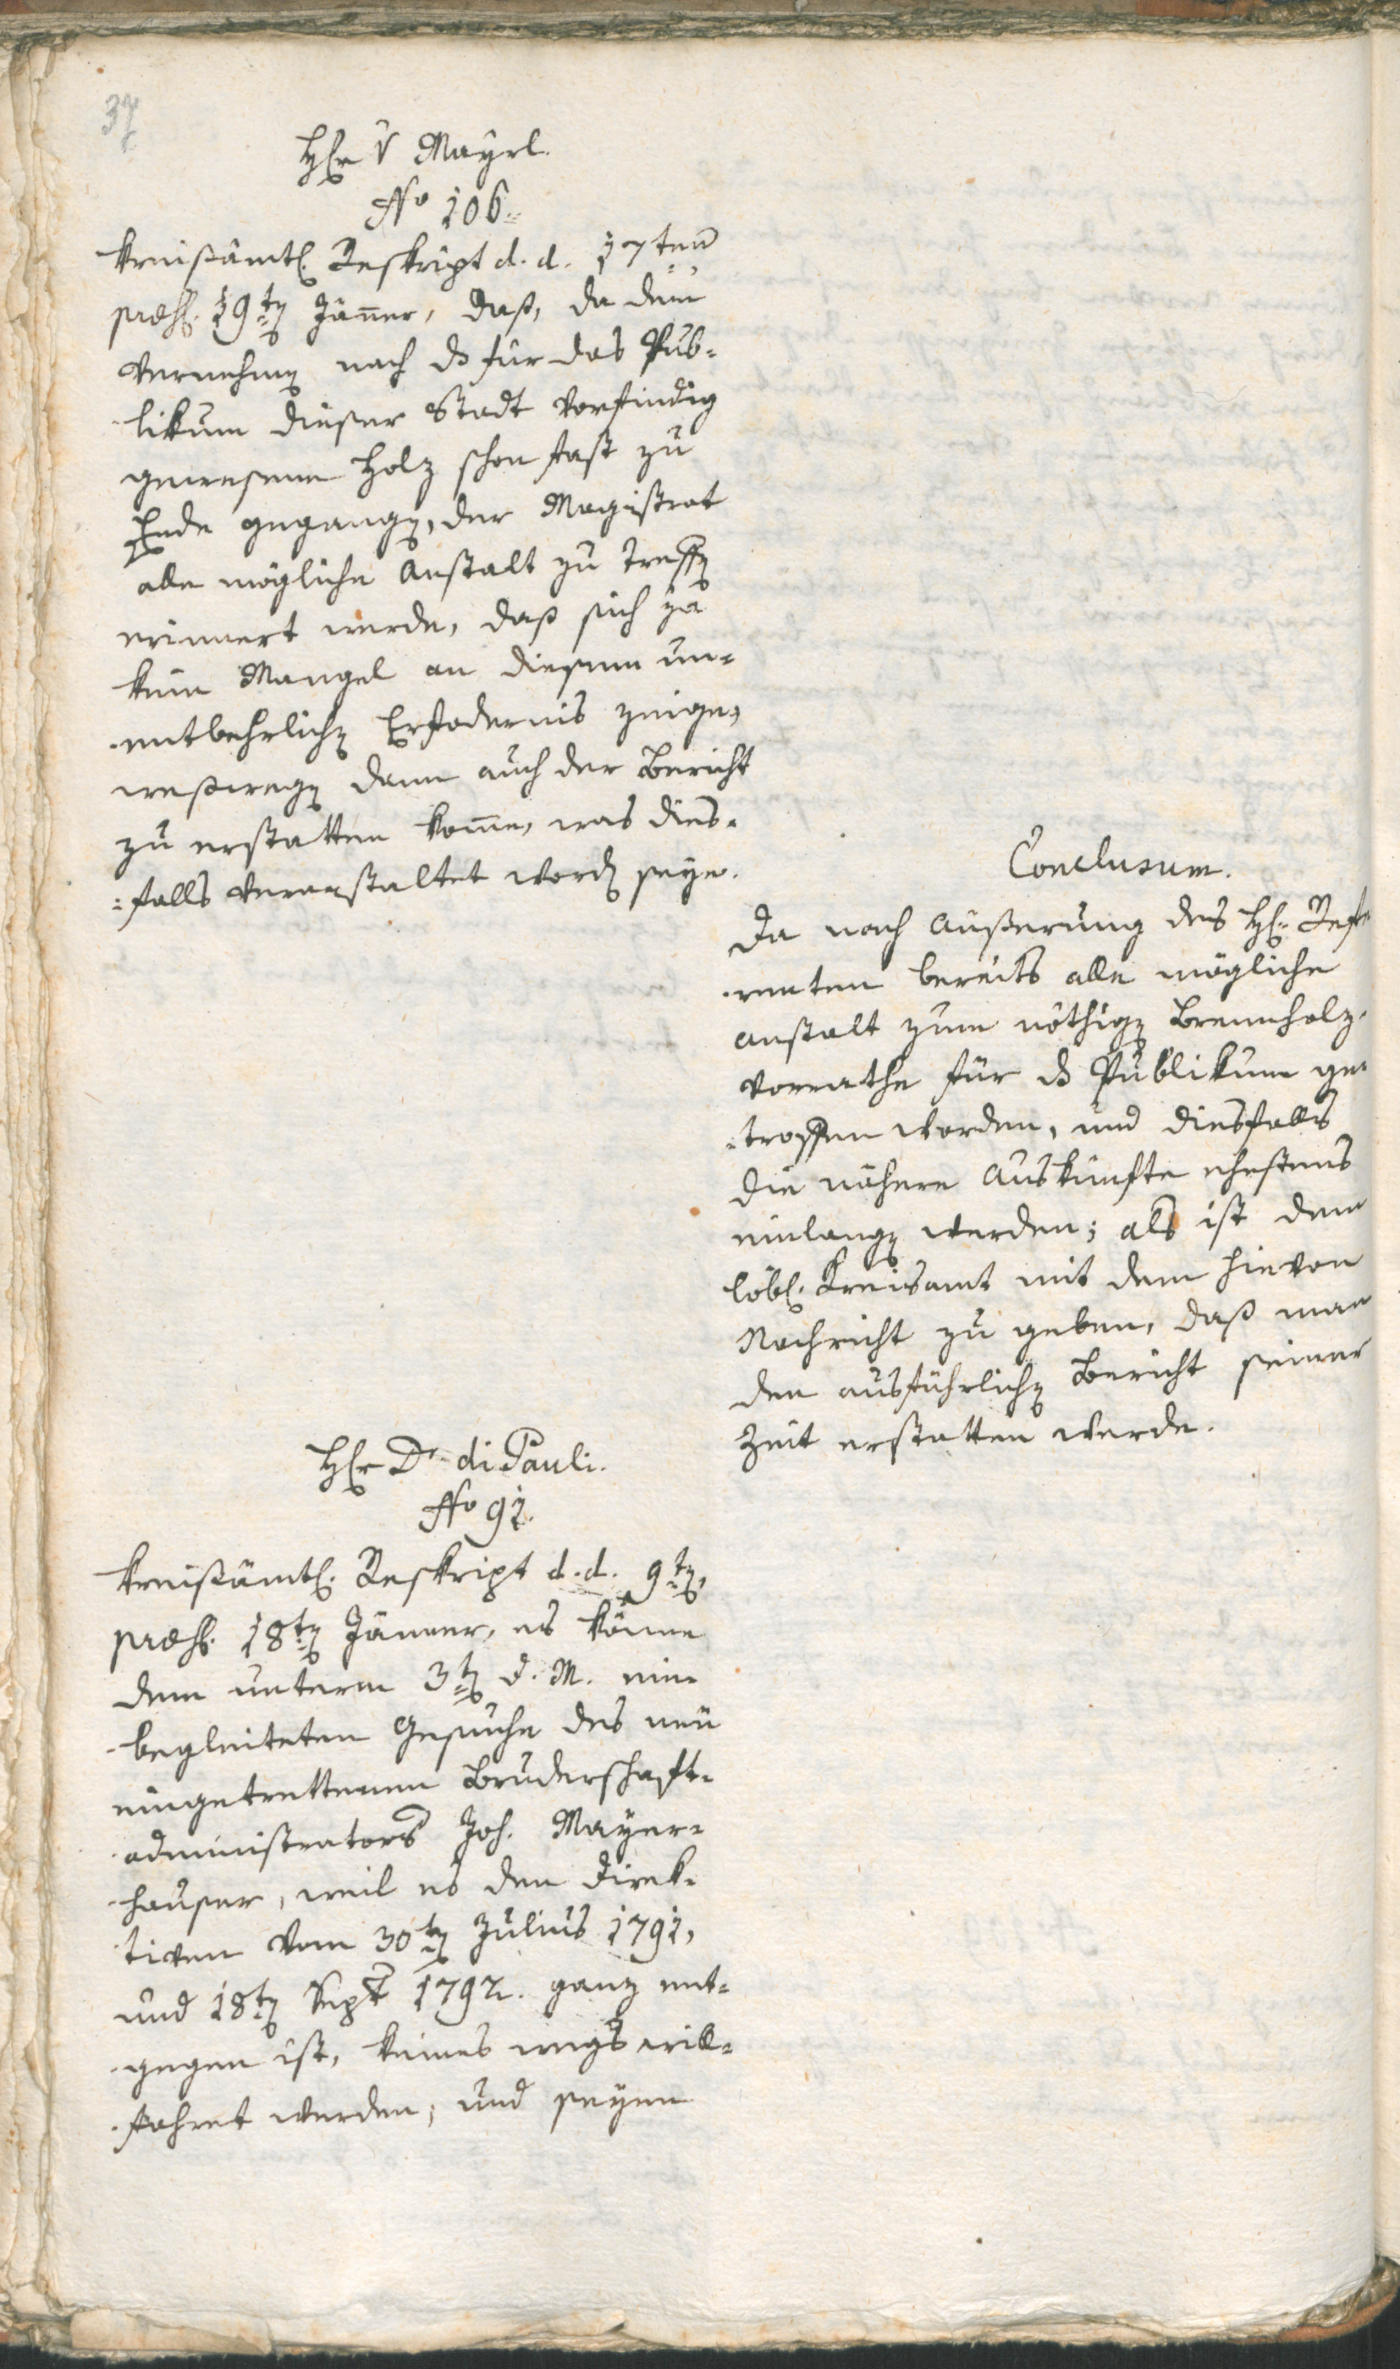 37
Hr v Mayrl.
No 106.
kreisämtl. Reskript d. d. 17ten
præs. 19ten Jänner, daß, da dem
Vernehmen nach ds für das Pub-
likum dieser Stadt vorfindig
gewesene Holz schon fast zu
Ende gegangen, der Magistrat
alle mögliche Anstalt zu treffen
erinnert werde, daß sich ja
kein Mangel an diesem un-
entbehrlichen Erfodernis zeige,
weßwegen dann auch der Bericht
zu erstatten komme, was dies-
falls veranstaltet worden seye.
Conclusum.
Da nach Äußerung des H. Refe
renten bereits alle mögliche
Anstalt zum nöthigen Brennholz-
vorrathe für ds Publikum ge-
troffen worden, und diesfalls
die nähere Auskünfte ehestens
einlangen werden; als ist dem
löbl. Kreisamt mit dem hievon
Nachricht zu geben, daß man
den ausführlichen Bericht seiner
Zeit erstatten werde.
Hr Dr di Pauli.
No 91.
kreisämtl. Reskript d. d. 9ten,
præs. 18ten Jänner, es könne
dem unterm 3ten d. M. ein-
begleiteten Gesuche des neu
eingetrettenen Bruderschaft-
administrators Joh. Mayer-
hauser, weil es den Direk-
tiven vom 30ten Julius 1791,
und 18ten Sept 1792. ganz ent-
gegen ist, keines wegs will-
fahret werden; und seyen